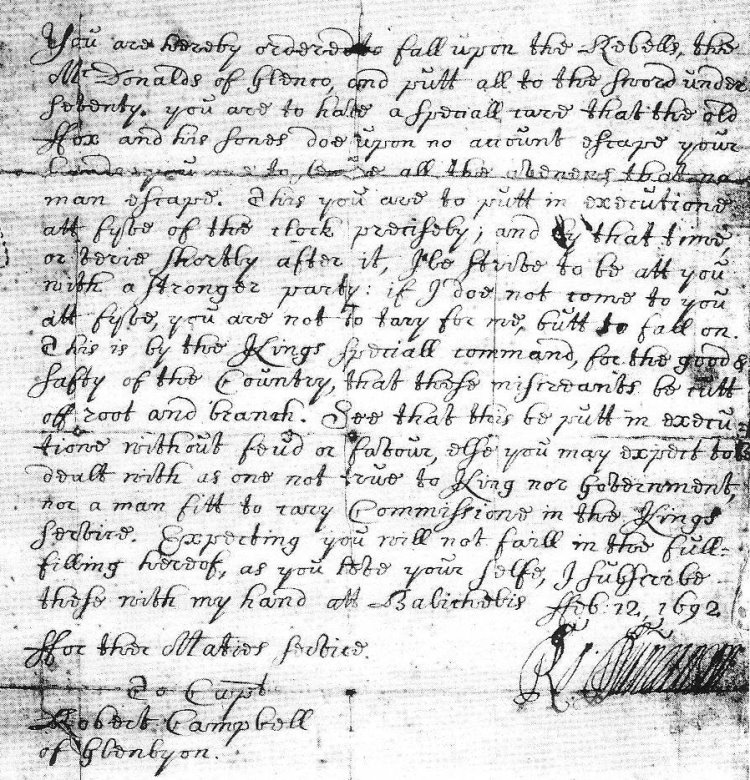 You are hereby ordered to fall upon the Rebells, the
McDonalds of Glenco, and putt all to the sword under
seventy. you are to have a speciall care that the old
ffox and his sones doe upon no account escape your
hands, you are to secure all the avenues that no
man escape. This you are to putt in executione
att fyve of the clock precisely; and by that time,
or verie shortly after it, I'le strive to be att you
with a stronger party: if I doe not come to you
att fyve, you are not to tary for me, butt to fall on.
This is by the Kings speciall command, for the good &
safty of the Country, that these miscreants be cutt
off root and branch. See that this be putt in execu-
tione without feud or favour, else you may expect to be
dealt with as one not true to King nor Government,
nor a man fitt to cary Commissione in the Kings
service. Expecting you will not faill in the full-
filling hereof, as you love your selfe, I subscribe
these with my hand att Balicholis ffeb: 12, 1692
ffor ther Maties service.
To Capt
Robert Campbell
of Glenlyon.